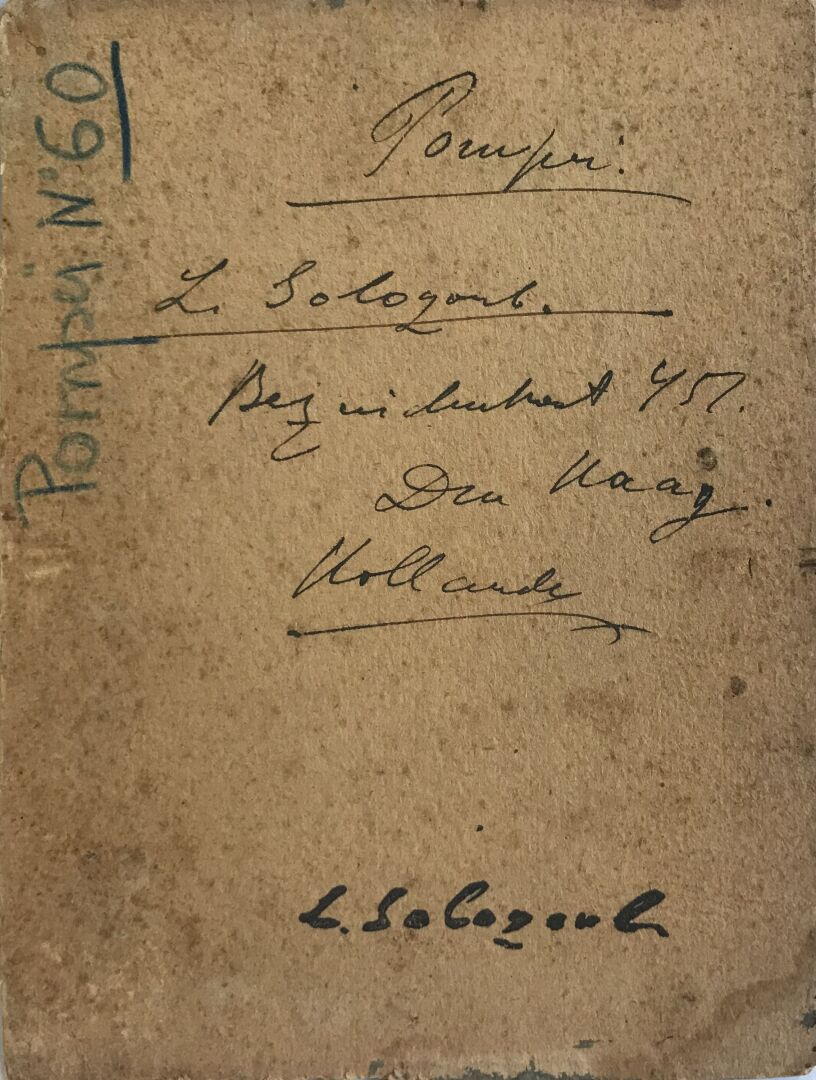 Pompei.
L. Sologoub.
Bezuidenhout 457.
Den Haag.
Hollande
L. Sologoub
Pompëi N°60